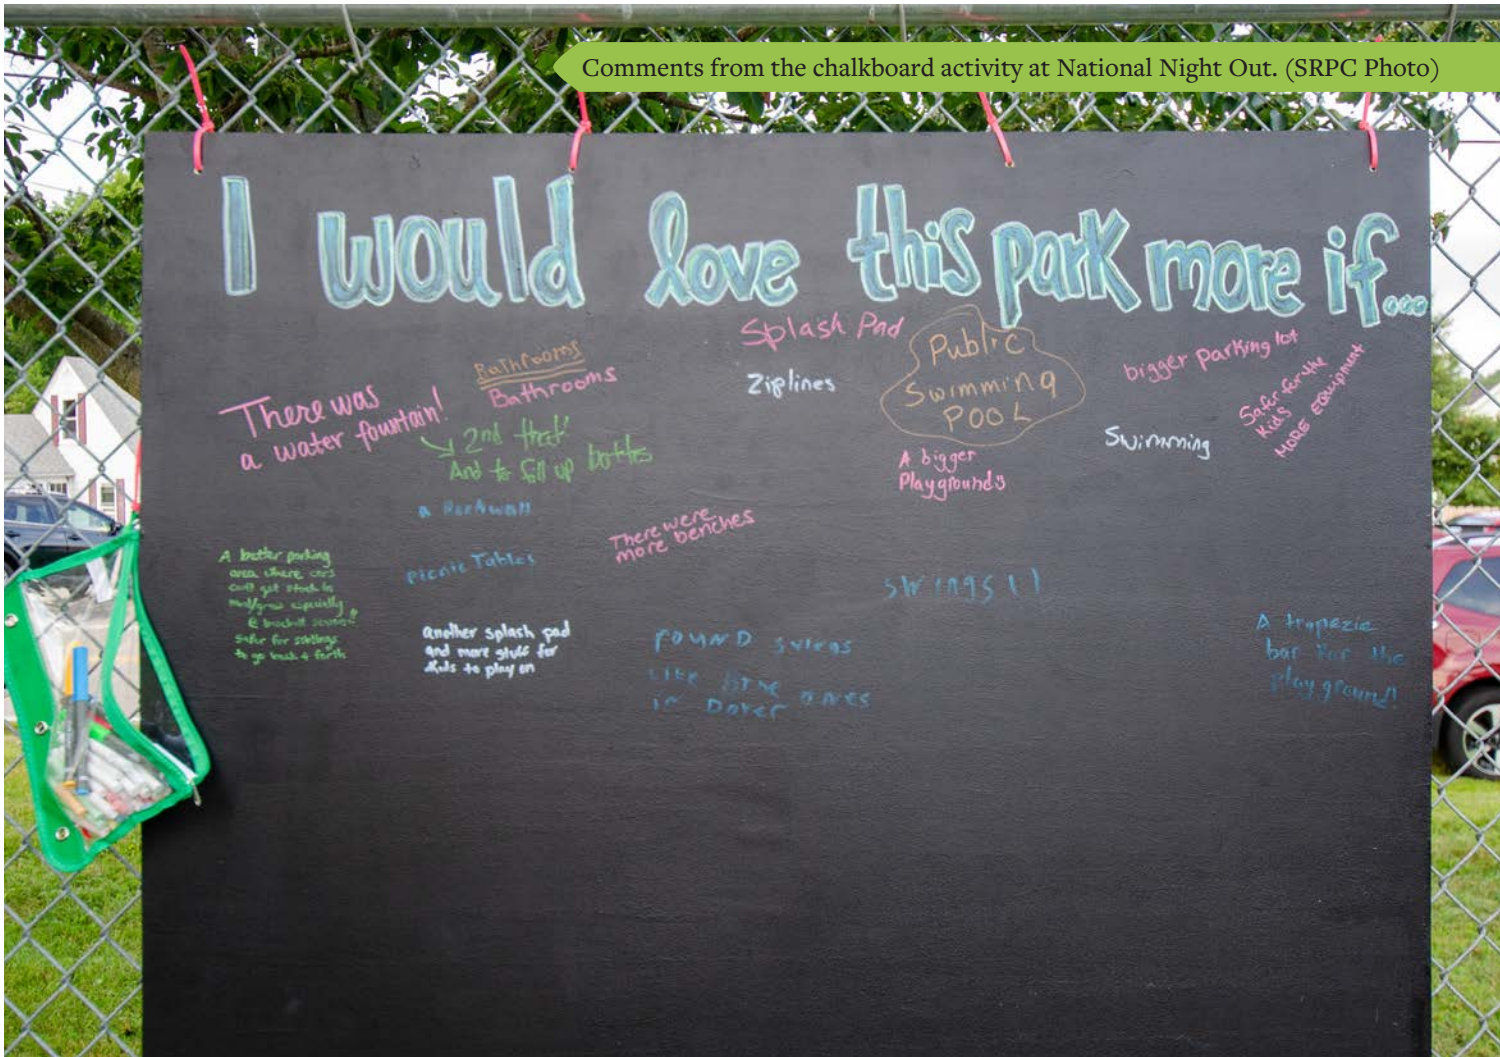 Comments from the chalkboard activity at National Night Out. (SRPC Photo)
I would love this park more if...
There was
a water fountain!
Bathrooms
Bathrooms
2nd that
And to fill up bottles
Splash Pad
Ziplines
Public
Swimming
POOL
bigger parking lot
Safer for the
Kids
MORE EQUIPMENT
Swimming
A bigger
Playground
a Rockwall
There were
more benches
Picnic Tables
A better parking
area where cars
can't get stuck in
mud/grass especially
@ baseball
safer for siblings
to go back & forth
another splash pad
and more stuff for
kids to play on
swings!!
round swings
like the ones
in Dover
A trapezie
bar for the
playground!